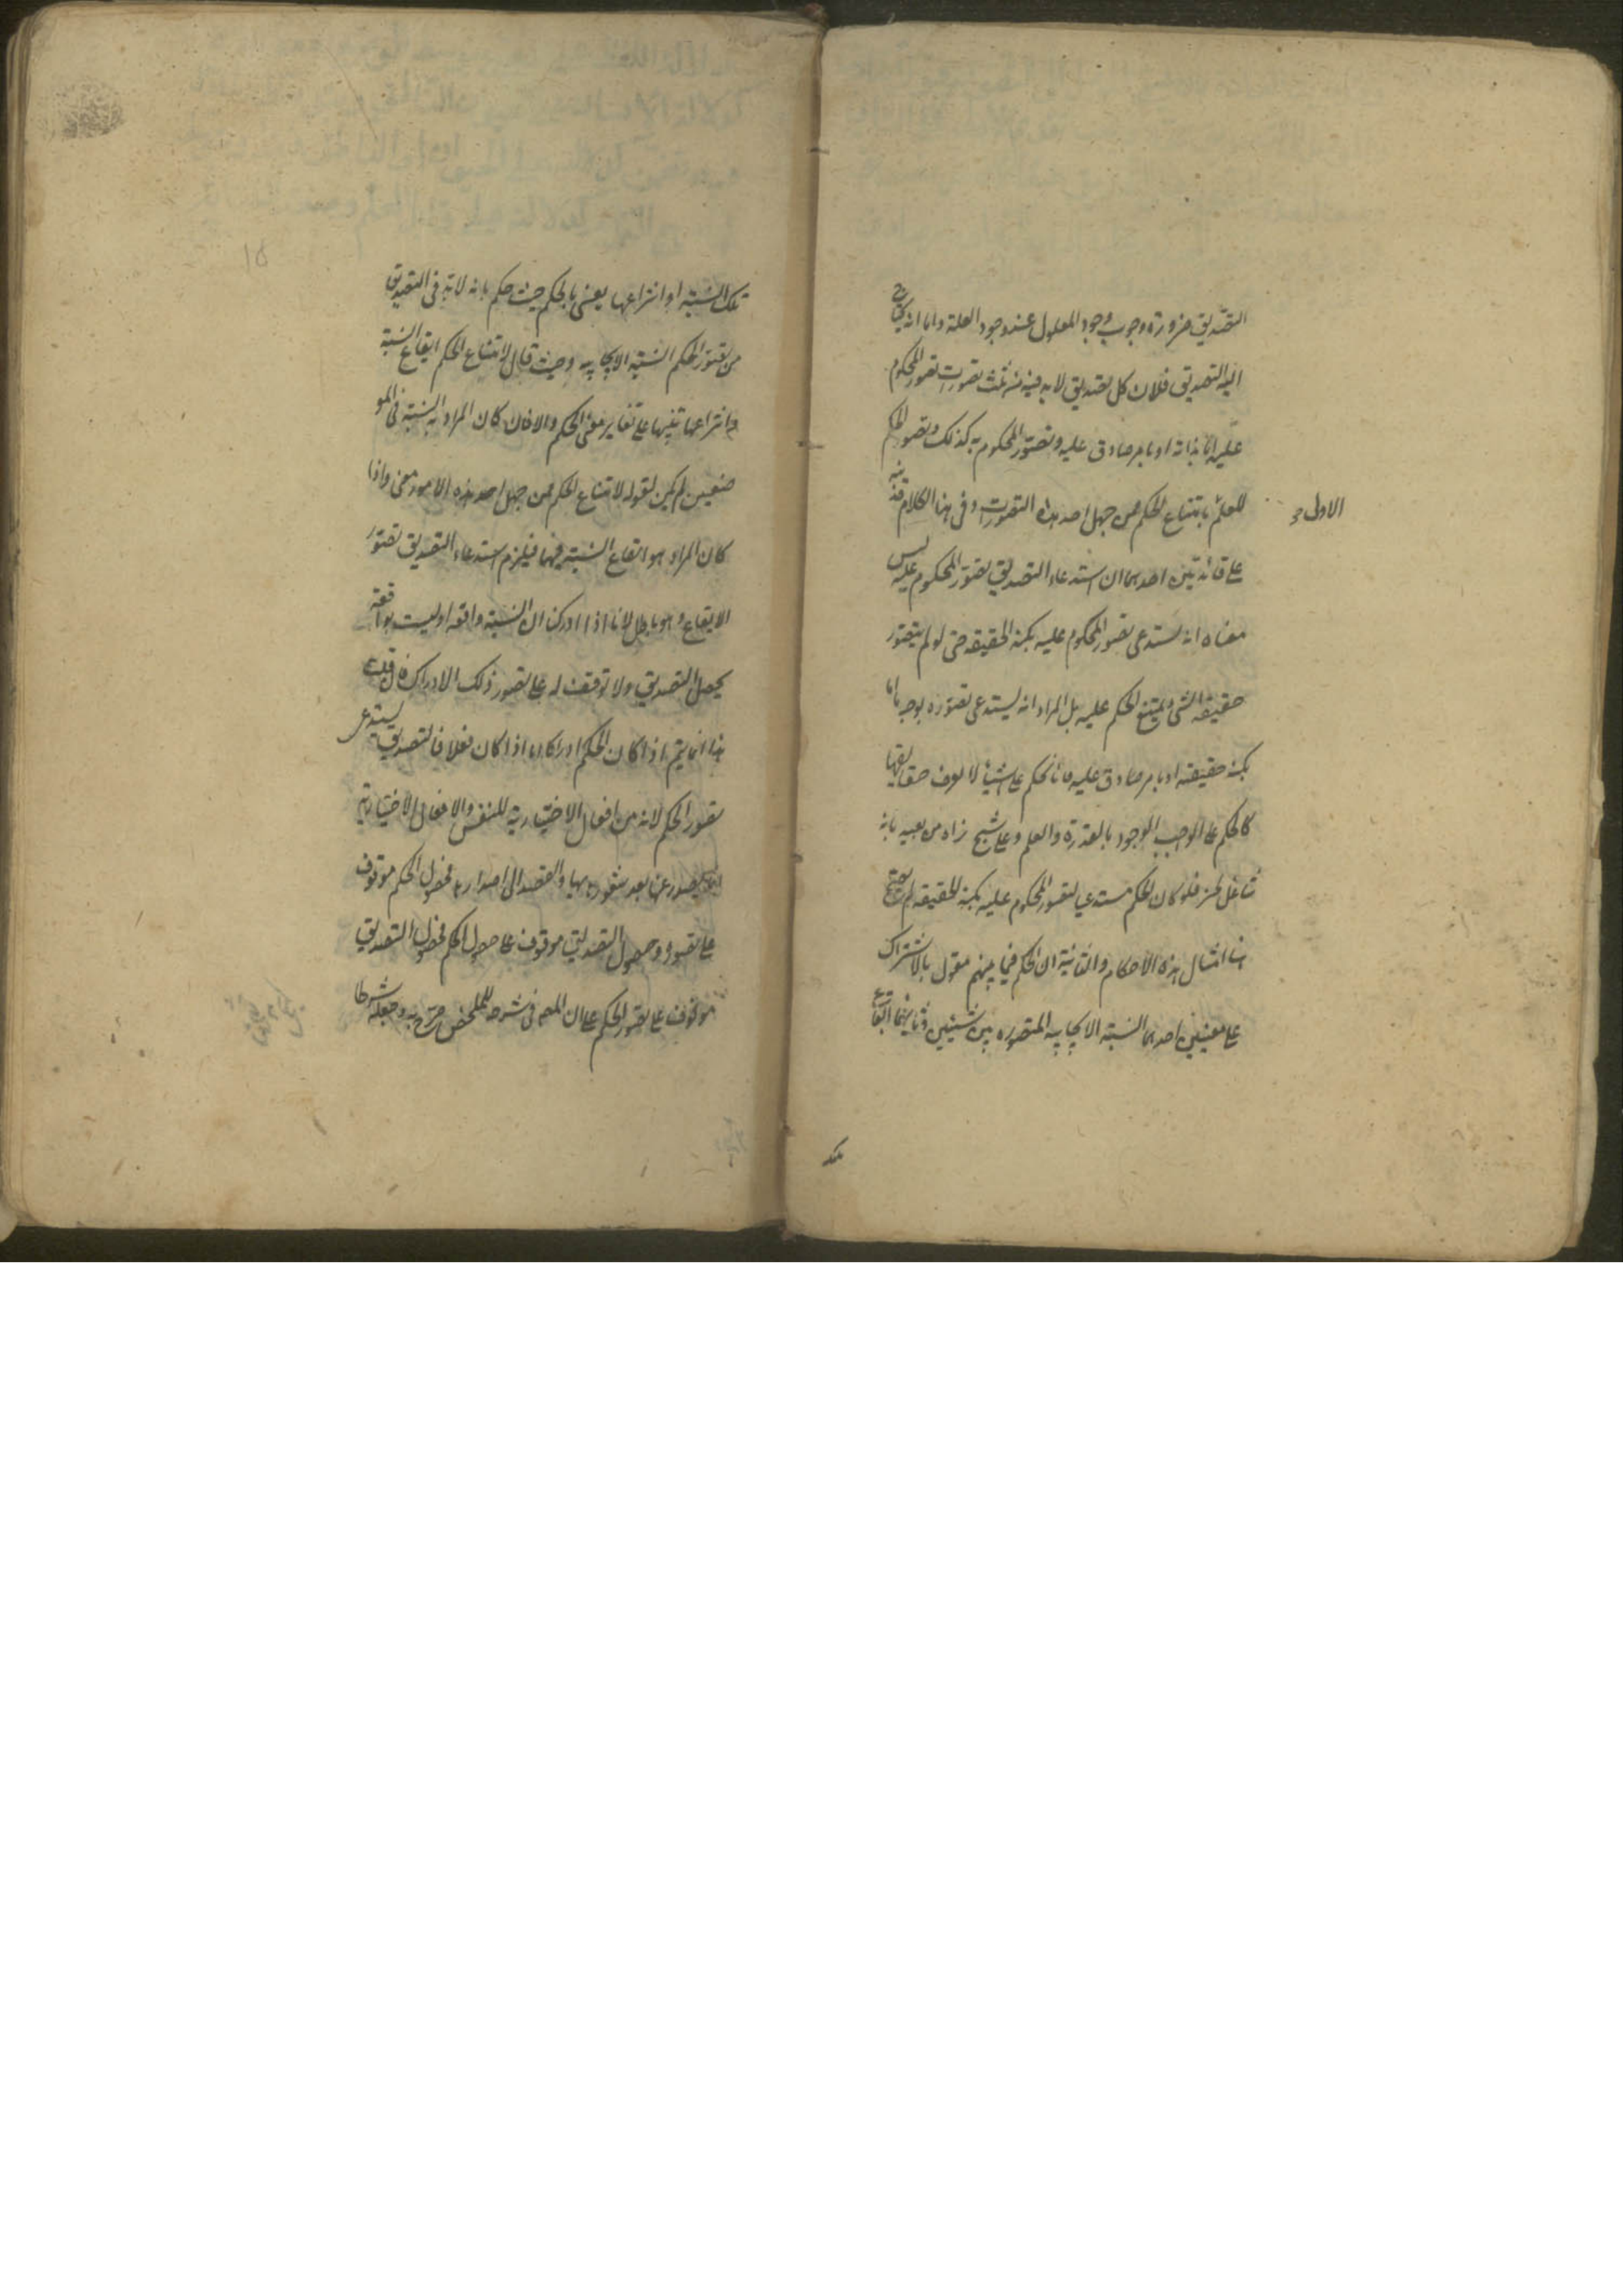 التصديق ضرورة وجوب وجود المعلول عند وجود العلة واما انه يحتاج
اليه التصديق فلان كل تصديق لابد فيه من ثلث تصورات تصور المحكوم
عليه اما بذاته او بامر صادق عليه وتصور المحكوم به كذلك وتصور الحكم
للعلم بامتناع الحكم ممن جهل احد هذه التصورات وفى هذا الكلام قد نبه
الاولى
على فائدتين احدهما ان استدعاء التصديق تصور المحكوم عليه ليس
معناه انه يستدعى تصور المحكوم عليه بكنه الحقيقة حتى لو لم يتصور
حقيقة الشى يمتنع الحكم عليه بل المراد انه يستدعى تصوره بوجه ما اما
بكنه حقيقته او بامر صادق عليه فانا نحكم على اشياء لا نعرف حقايقها
كالحكم على الواجب الوجود بالقدرة والعلم وعلى شبح نراه من بعيد بانه
شاغل لحيز فلو كان الحكم مستدعيا لتصور المحكوم عليه بكنه الحقيقة لم يصح
منا امثال هذه الاحكام والثانية ان الحكم فيما بينهم مقول بالاشتراك
على معنيين احدهما النسبة الايجابية المتصوره بين شيئين وثانيهما ايقاع
تلك
تلك النسبة او انتزاعها يعنى بالحكم حيث حكم بانه لابد فى التصديق
من تصور الحكم النسبة الايجابيه وحيث قال لامتناع الحكم ايقاع النسبة
وانتزاعها تنبيها على تغاير معنى الحكم والا فان كان المراد به النسبة فى المو
ضعين لم يكن لقوله لامتناع الحكم ممن جهل احد هذه الامور معنى واذا
كان المراد هو ايقاع النسبة فيهما فيلزم استدعاء التصديق تصور
الايقاع وهو باطل لانا اذا ادركنا ان النسبة واقعة او ليست بواقعة
يحصل التصديق ولا توقف له على تصور ذلك الادراك فان قلت
هذا انما يتم اذا كان الحكم ادراكا اما اذا كان فعلا فالتصديق يستدعى
تصور الحكم لانه من افعال الاختيارية للنفس والافعال الاختيارية
انما يصدر عنها بعد شعورها بها والقصد الى اصدارها فحصول الحكم موقوف
على تصوره وحصول التصديق موقوف على حصول الحكم فحصول التصديق
موقوف على تصور الحكم على ان المص فى شرحه للملخص صرح به وجعله شرطا